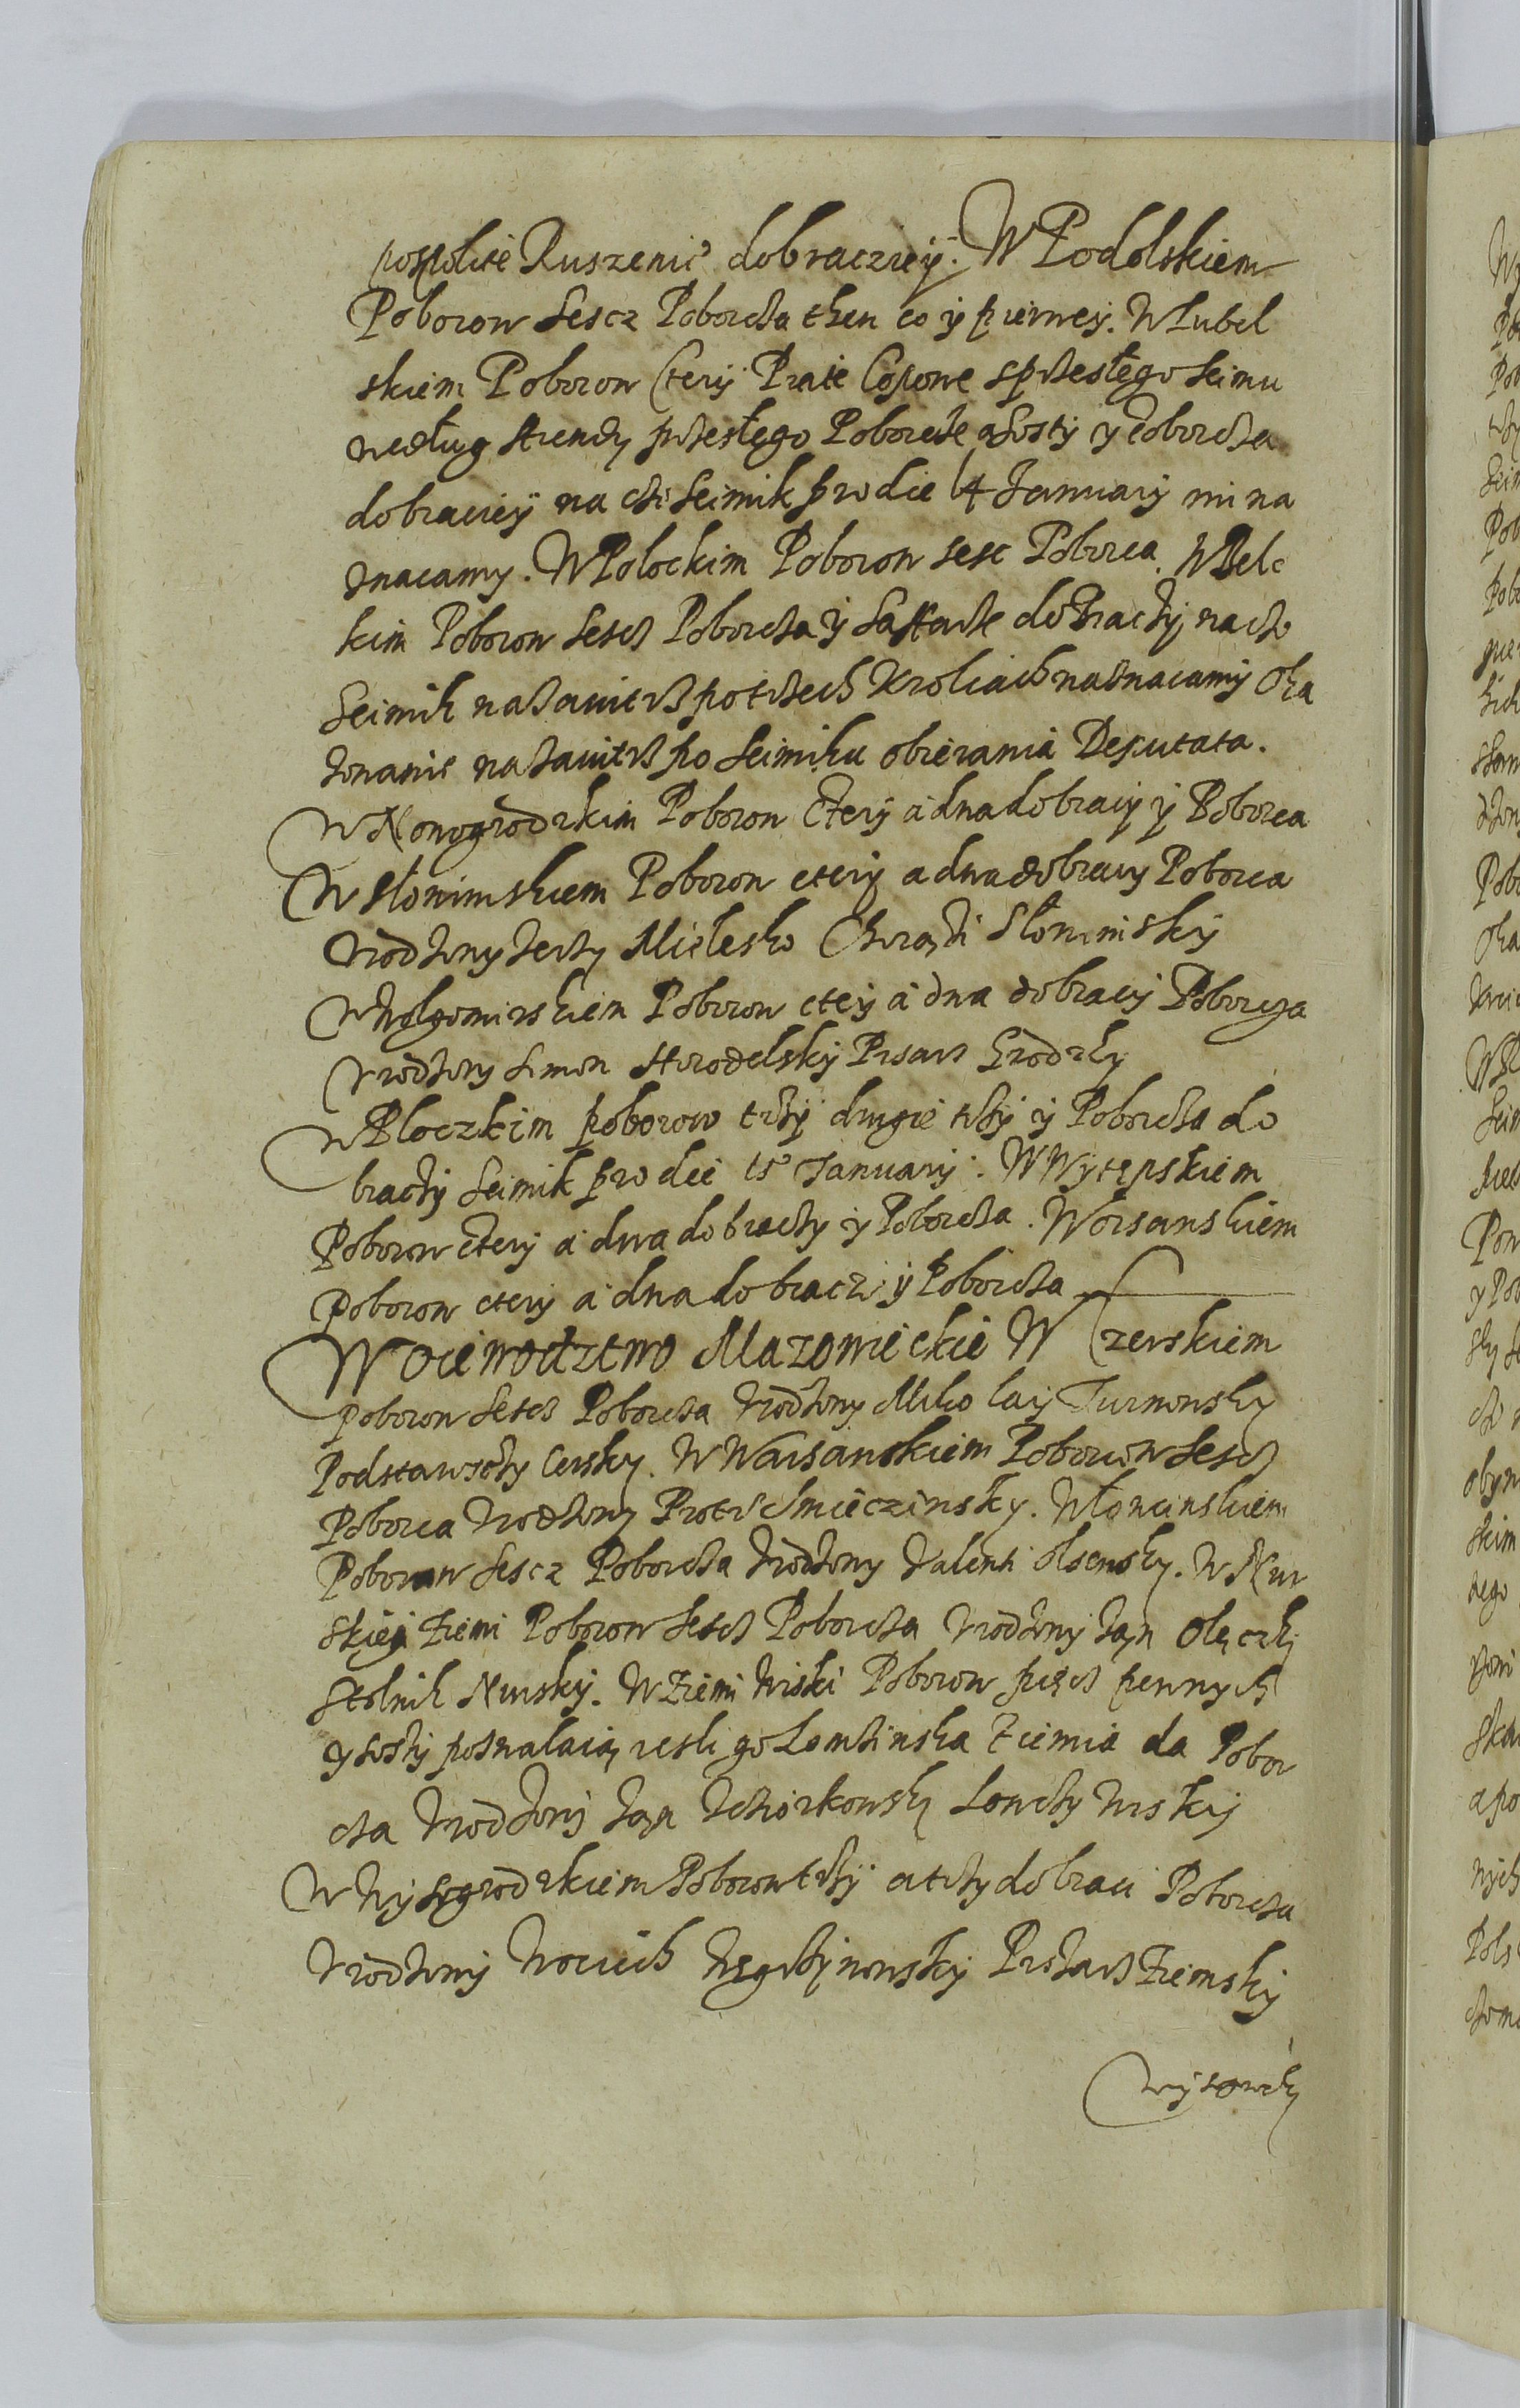 pospolite Ruszenie dobracziey. W Podolskiem
Poborow sescz Poborcza then co y pierwey. W Lubel
skiem Poborow Ctery Placie Copowe s przesłego Seimu
według Arendy przesłego Poborcze ... y Poborcza
dobraciey na ... Seimik pro die 14 January mi na
znacamy. W Polockim Poborow sesc Poborca. W Bels
kim Poborow sescz Poborcza y Safarze do Braczy na ...
Seimik nazaiutrz po trzech Kroliach naznacamy Oka
zowanie nazaiutrz po Seimiku obierania Deputata.
W Nowogrodzkim Poborow Ctery a dwa do bracy y Poborca
W Słonimskiem Poborow ctery a dwa do bracy Poborca
Vrodzony Jerzy Mielesko Chorąży Słonimsky
W Wołkowiiskiem Poborow ctery a dwa do bracy Poborcza
Vrodzony Simon Horodelsky Pisarz Grodzky
W Ploczkim poborow trzy drugie trzy y Poborcza do
braczy Seimik pro die 15 January. W Wytepskiem
Poborow Ctery a dwa do braczy y Poborcza. W Orsanskiem
poborow ctery a dwa do braczi y Poborcza
Woiewodztwo Mazowieckie W Czerskiem
poborow sescz Poborcza Vrodzony Mikolay Turnowsky
Podstarosczy Cersky. W Warsawskiem Poborow Sescz
Poborca Vrodzony Piotr ... W Łomzinskiem
Poborow Sescz Poborcza Vrodzony Valenti Olsensky. W Nur
skiey Ziemi Poborow Sescz Poborcza Vrodzony Jan Olęczky
Stolnik Nursky. W Ziemi Wiski Poborow pięcz pewnych
a szosty pozwalaią iesli go Lomzinska Ziemia da Pobor
cza Vrodzony Jan ... Lowczy Wisky
W Wysogrodzkiem Poborow trzy a trzy do braci Poborcza
Vrodzony Woiciech ... Pisarz Ziemsky